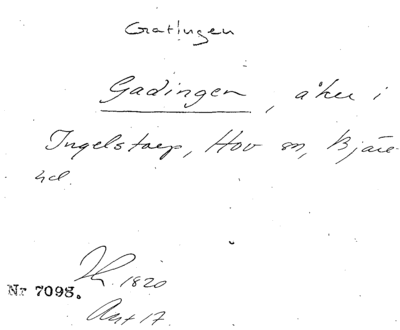 Gratingen
Gadingen, åker i
Ingelstorp, Hov sn, Bjäre
hd.
Nr 7098. Ih. 1820
Akt 17